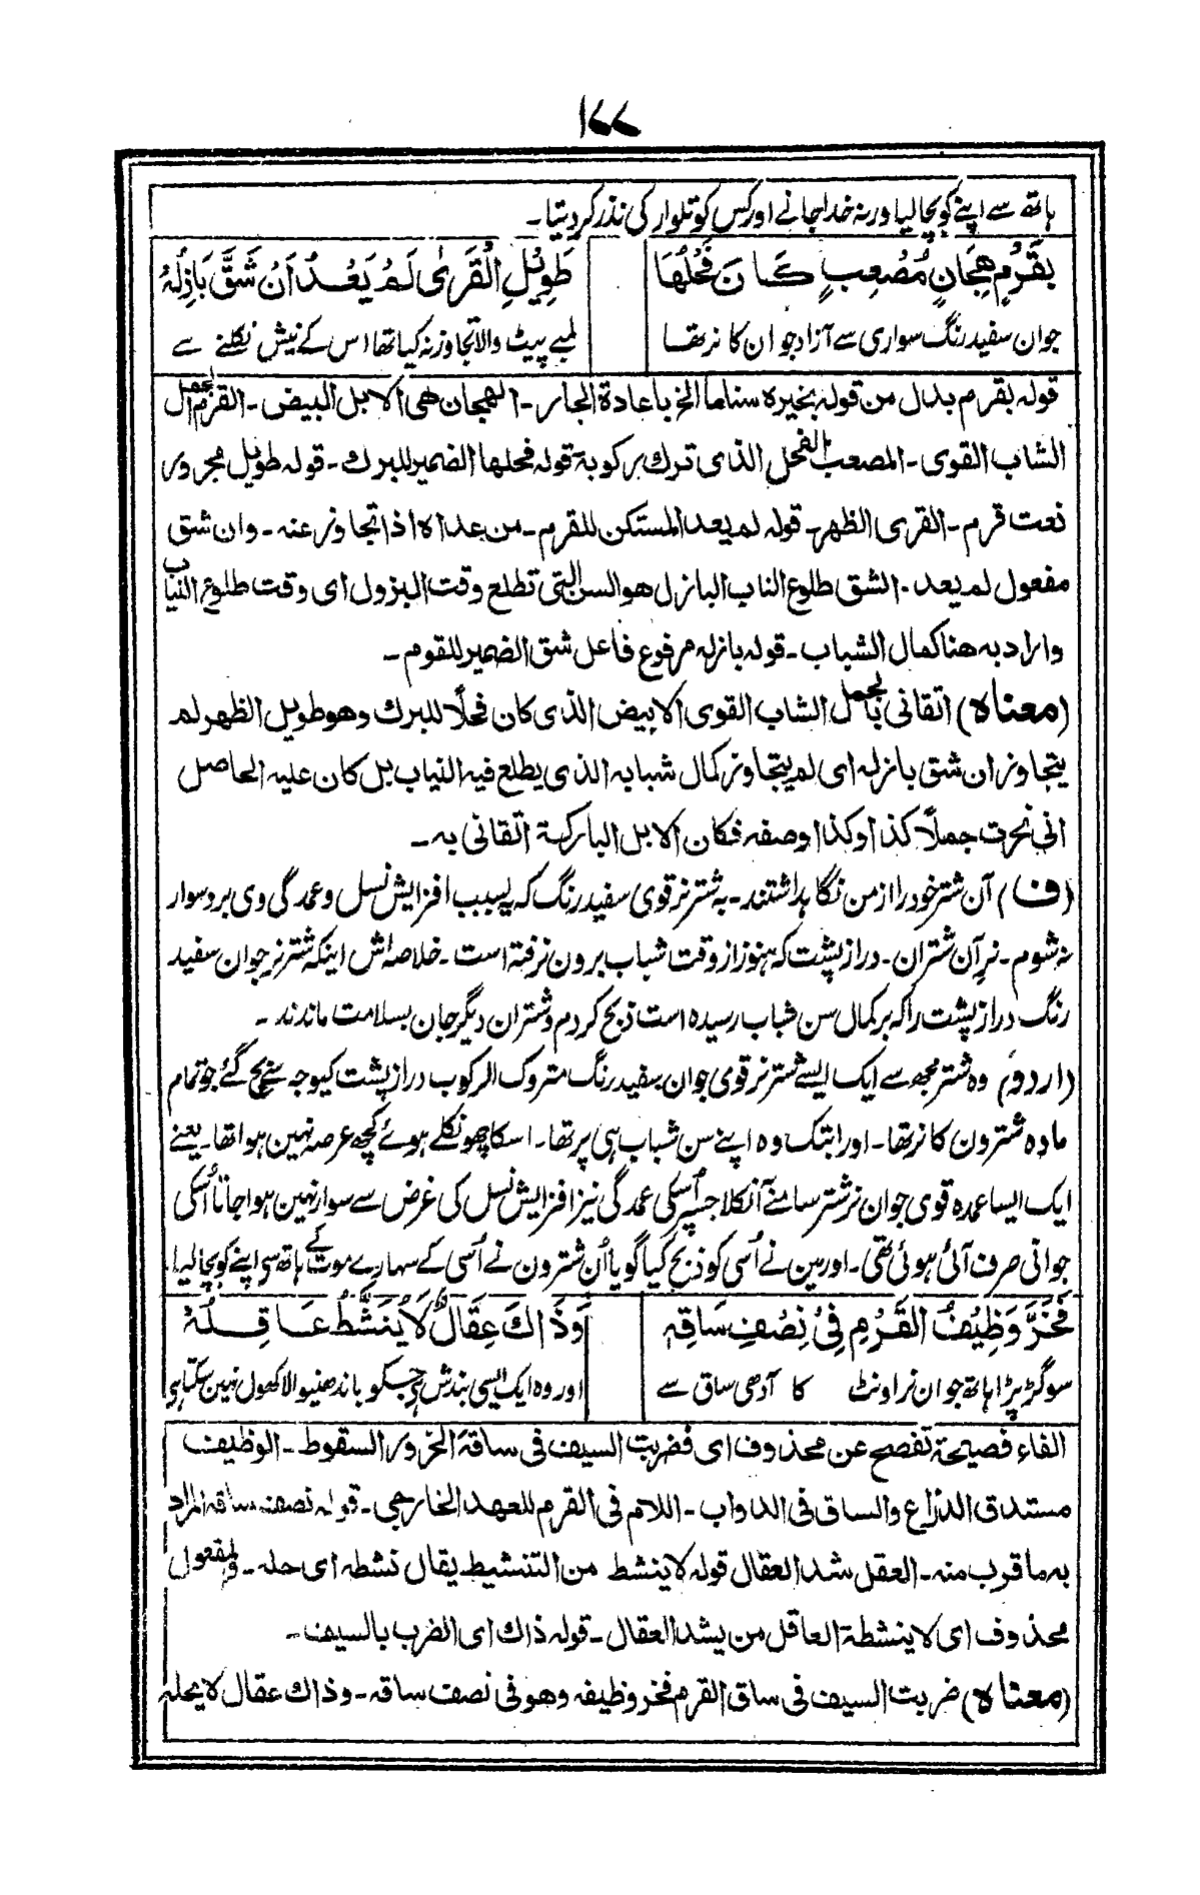 ۱۷۷
ہاتھ سے اپنے کو بچالیا ورنہ خدا جانے اور کس کو تلوار کی نذر کر دیتا۔
بِقَرْمٍ هِجَانٍ مُصْعِبٍ كَانَ فَحْلُهَا
طَوِيْلِ الْقَرٰى لَمْ يَعْدُ اَنْ شَقَّ بَازِلُهٗ
جوان سفید رنگ سواری سے آزاد جو ان کا نر تھا
لمبے پیٹ والا تجاوز نہ کیا تھا اس کے نیش نکلنے سے
قوله بقرم بدل من قوله بخيره سناما الخ باعادة الجار۔ الهجان هى الابل البيض۔ القرم الجمل
الشاب القوى۔ المصعب الفحل الذى ترك ركوبة قوله فحلها الضمير للبرك۔ قوله طويل مجرور
نعت قرم۔ القرى الظهر۔ قوله لم يعد المستكن للقرم۔ من عداه اذا تجاوز عنه۔ وان شق
مفعول لم يعد۔ الشق طلوع الناب البازل هو السن التى تطلع وقت البزول اى وقت طلوع النياب
واراد به هنا كمال الشباب۔ قوله بازله مرفوع فاعل شق الضمير للقوم۔
(معناه) اتقانى بالجمل الشاب القوى الابيض الذى كان فحلًا للبرك وهو طويل الظهر لم
يتجاوز ان شق بازله اى لم يتجاوز كمال شبابه الذى يطلع فيه النياب بل كان عليه الحاصل
انى نحرت جملًا كذا وكذا وصفه فكان الابل الباركة اتقانى به۔
(ف) آن شتر خود را از من نگاہداشتند۔ بہ شتر نر قوی سفید رنگ کہ بسبب افزایش نسل و عمدگی وی برو سوار
نہ شوم۔ نر آن شتران۔ دراز پشت کہ ہنوز از وقت شباب برون نرفتہ است۔ خلاصہ اش اینکہ شتر نر جوان سفید
رنگ دراز پشت را کہ بر کمال سن شباب رسیدہ است ذبح کردم و شتران دیگر جان بسلامت ماندند۔
(اردو) وہ شتر مجھ سے ایک ایسے شتر نر قوی جوان سفید رنگ متروک الرکوب دراز پشت کیوجہ سے بچ گئے جو تمام
مادہ شترون کا نر تھا۔ اور ابتک وہ اپنے سن شباب ہی پر تھا۔ اسکا چھو نکلے ہوئے کچھ عرصہ نہین ہوا تھا۔ یعنے
ایک ایسا عمدہ قوی جوان نر شتر سامنے آنکلا جسپر اُسکی عمدگی نیز افزایش نسل کی غرض سے سوار نہین ہوا جاتا اُسکی
جوانی صرف آئی ہوئی تھی۔ اور مین نے اُسی کو ذبح کیا گویا اُن شترون نے اُسی کے سہارے موت کے ہاتھ سے اپنے کو بچالیا۔
فَخَرَّ وَظِيْفُ الْقَرْمِ فِىْ نِصْفِ سَاقِهٖ
وَذَاكَ عِقَالٌ لَا يُنَشِّطُ عَاقِلُهٗ
سو گر پڑا ہاتھ جوان نر اونٹ کا آدھی ساق سے
اور وہ ایک ایسی بندش ہی جسکو باندھنیوالا کھول نہین سکتا ہی
الفاء فصيحة تفصح عن محذوف اى فضربت السيف فى ساقه الخرور السقوط۔ الوظيف
مستدق الذراع والساق فى الدواب۔ اللام فى القرم للعهد الخارجى۔ قوله نصف ساقه المراد
به ما قرب منه۔ العقل شد العقال قوله لا ينشط من التنشيط يقال نشطه اى حله۔ والمفعول
محذوف اى لا ينشطة العاقل من يشد العقال۔ قوله ذاك اى الضرب بالسيف۔
(معناه) ضربت السيف فى ساق القرم فخر وظيفه وهو فى نصف ساقه۔ وذاك عقال لا يحله